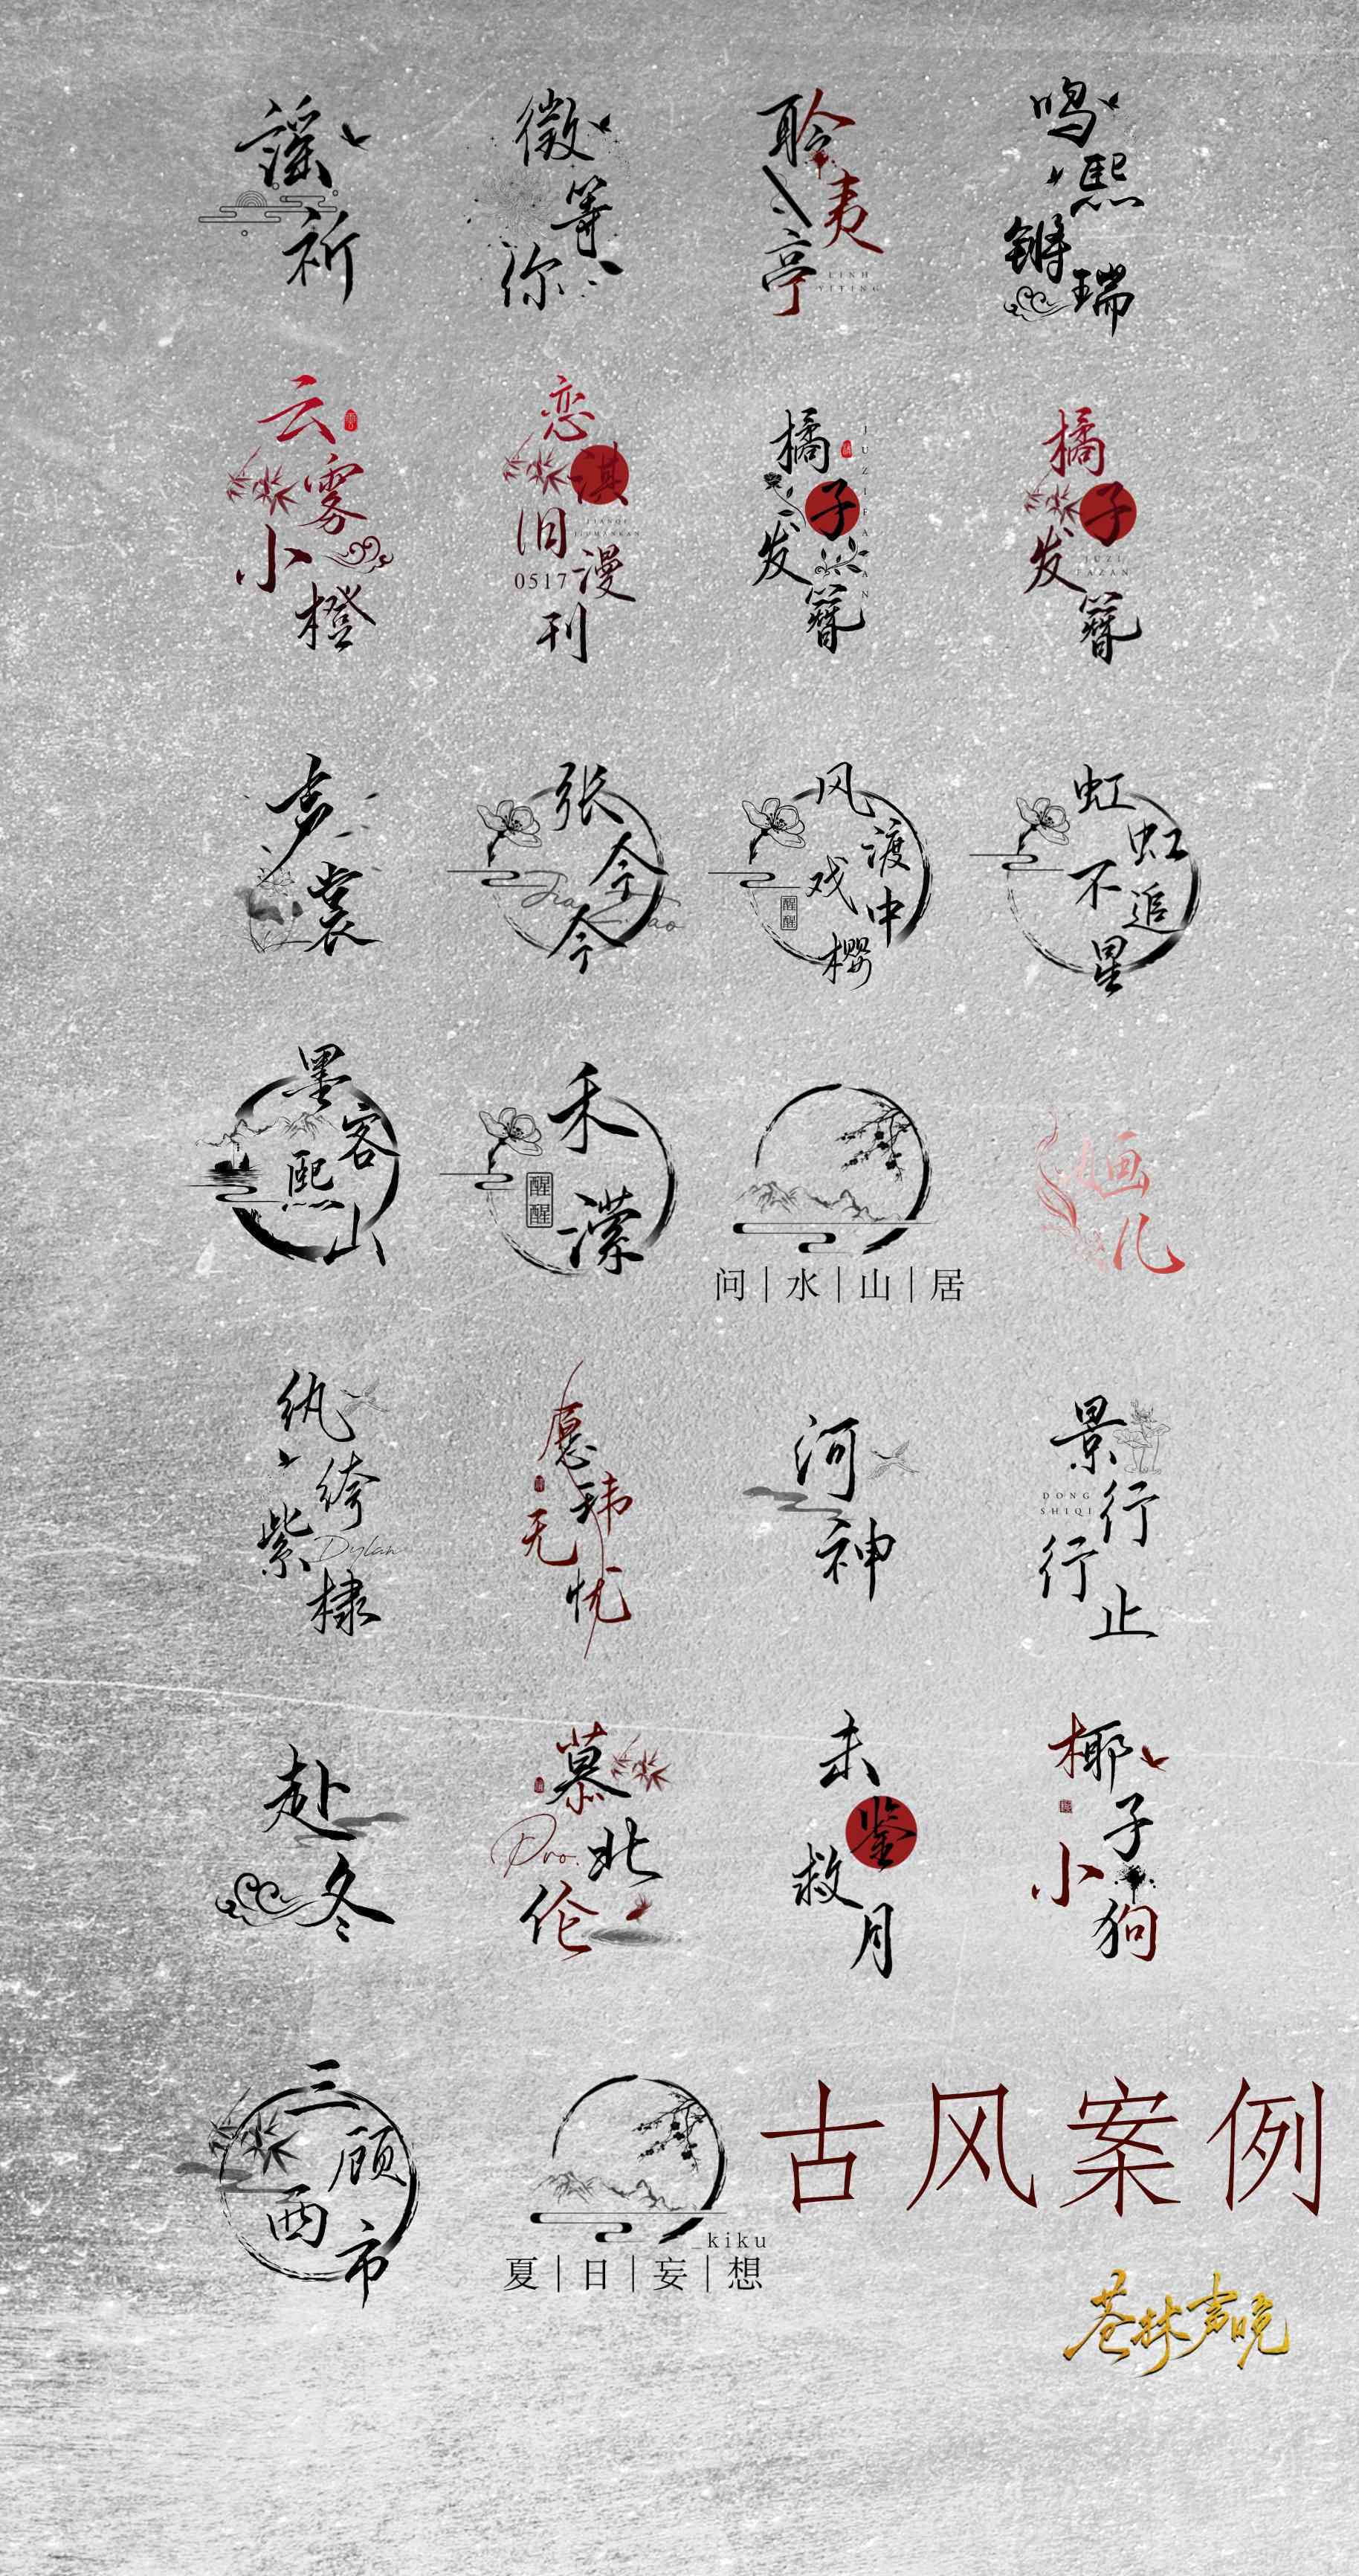 谣祈
微等你
聆夷亭
LINH
YITING
鸣熙锵瑞
云雾小橙
恋淇旧漫刊
LIANQI
JIUMANKAN
0517
橘子发簪
JUZIFAZAN
橘子发簪
JUZI
FAZAN
声裳
张今今
风渡戏中樱
醒醒
虹虹不追星
墨客熙山
禾潆
醒醒
问|水|山|居
婳儿
纨绔紫棣
Dylan
愿玮无忧
河神
景行行止
DONG
SHIQI
赴冬
慕北伦
Pro.
未鉴救月
椰子小狗
三顾西市
_kiku
夏|日|妄|想
古风案例
苍林声晚